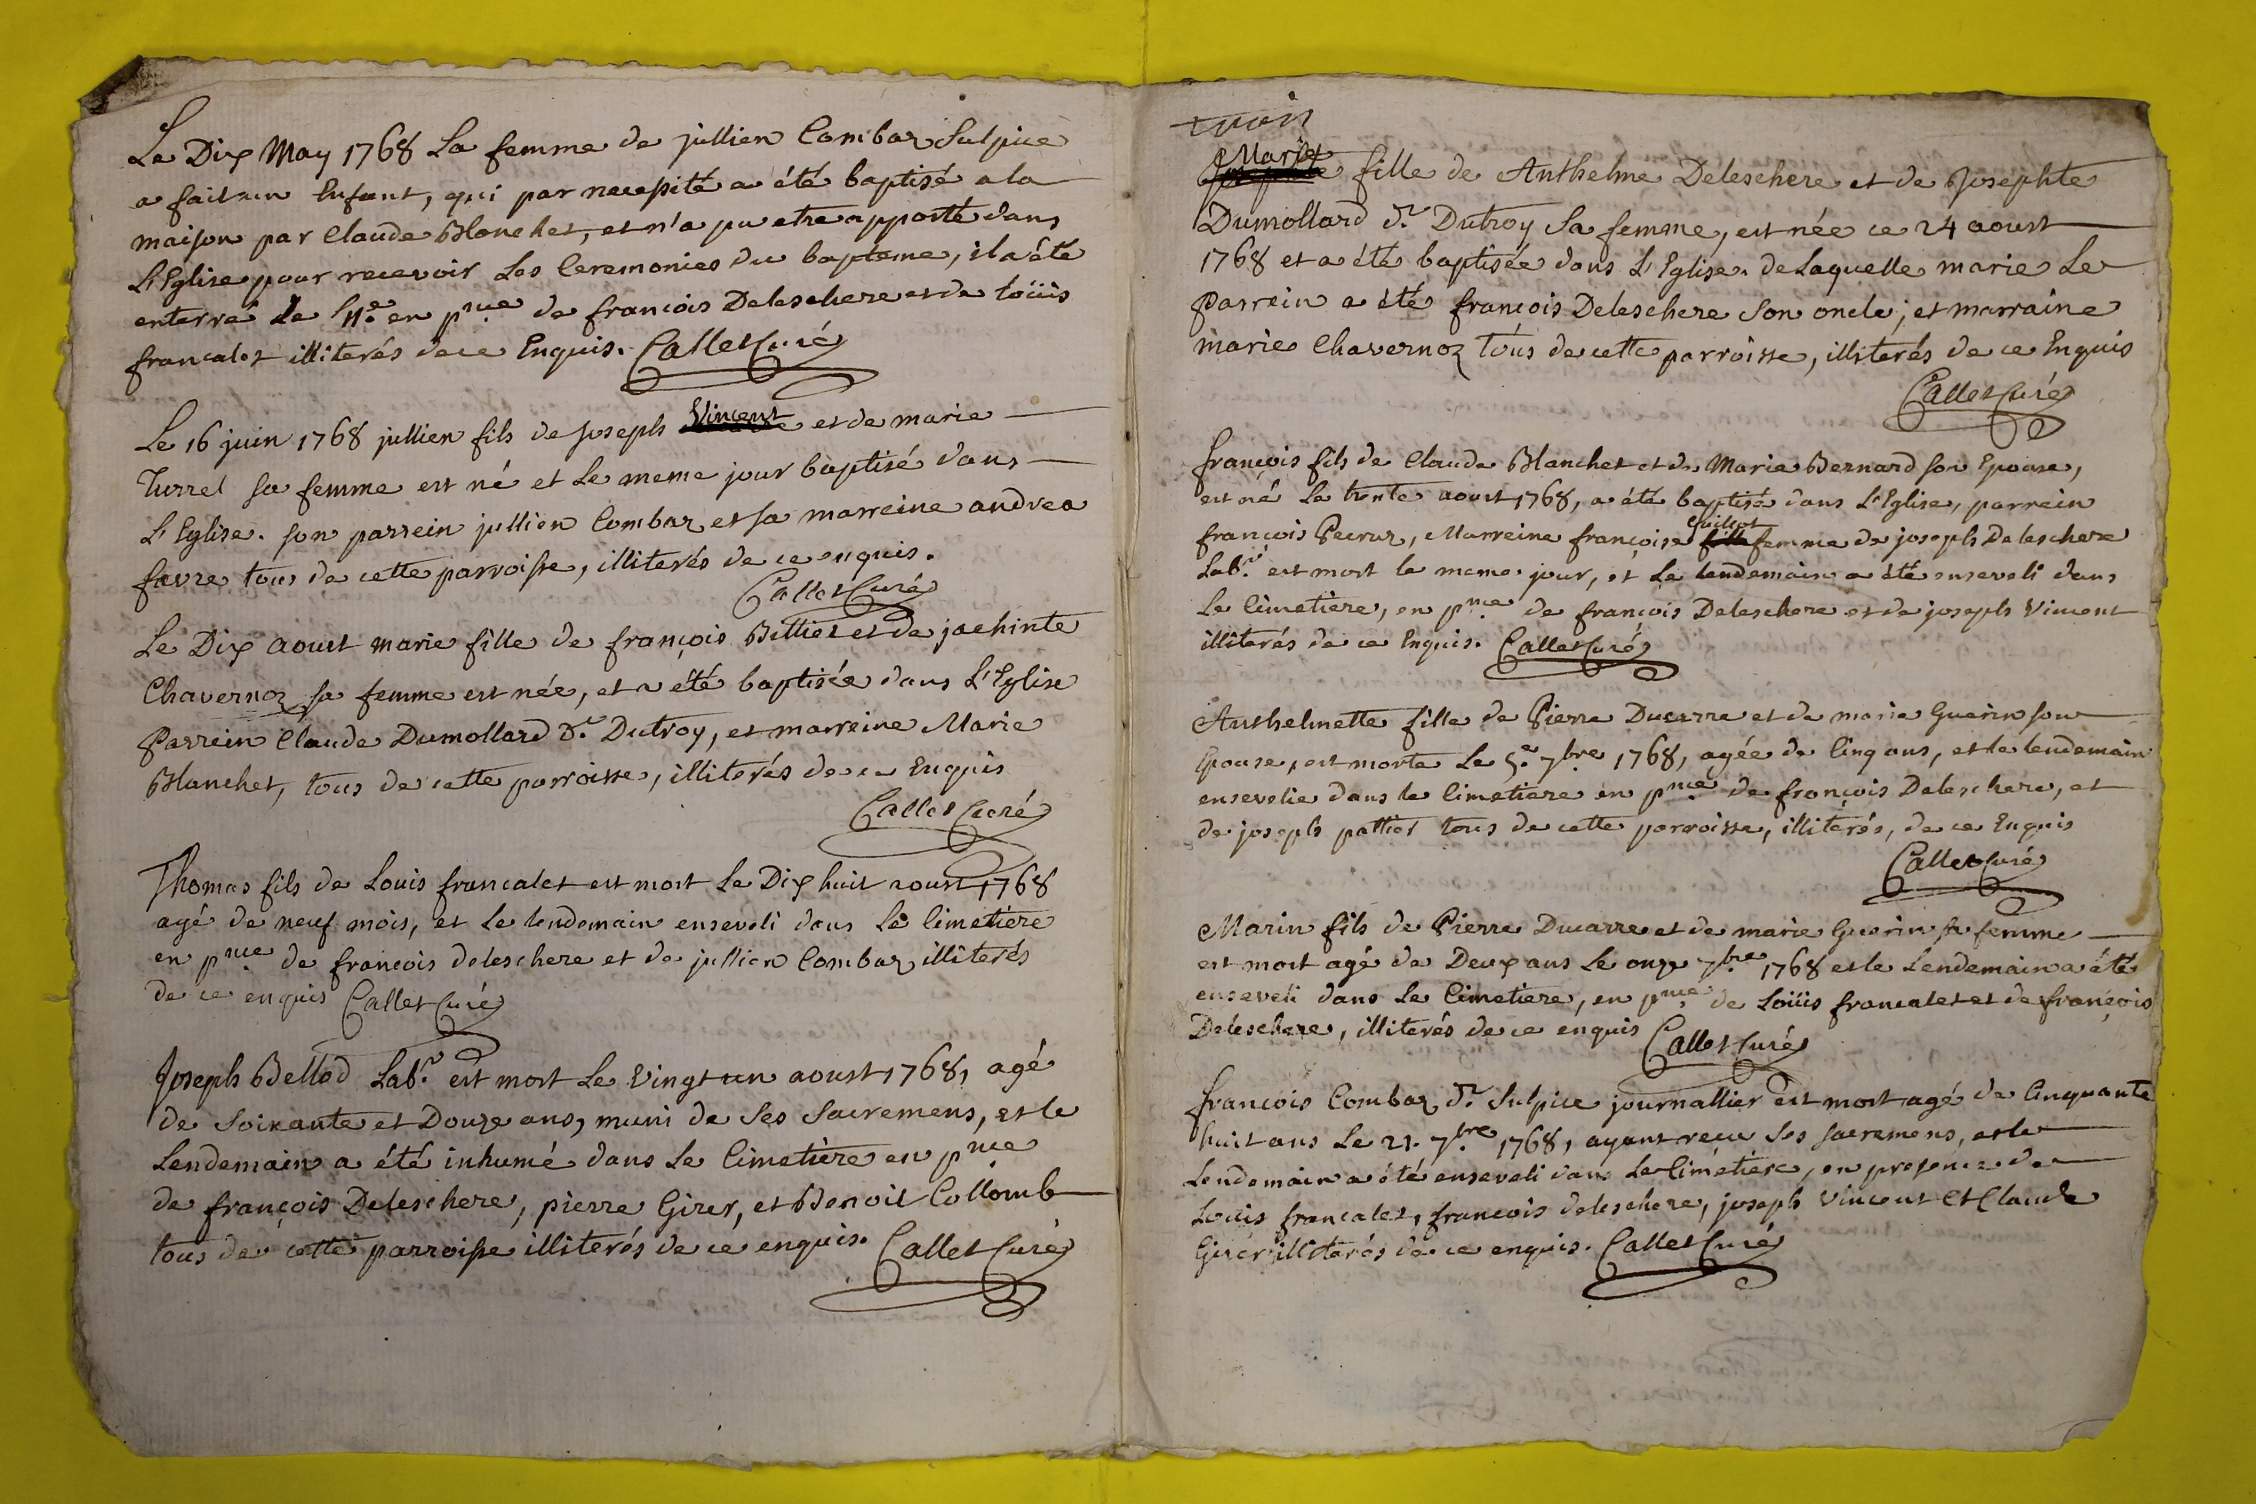 Le Dix May 1768 La femme de jullien Combaz Sulpice
a fait un Enfant, qui par necessité a été baptisé a la
maison par Claude Blanchet, et n'a pu etre apporté dans
L'Eglise pour recevoir Les Ceremonies du baptême, il a été
enterré le 11.e en pnce de françois Deleschere et de Loüis
francalet illiterés de ce Enquis. Callet Curé
Le 16 juin 1768 jullien fils de joseph Vincent et de marie
Turrel sa femme est né et Le meme jour baptisé dans
L'Eglise. son parrein jullien Combaz et sa marreine andrea
favre tous de cette parroisse, illiterés de ce enquis.
Callet Curé
Le Dix aoust marie fille de françois Billiet et de jachinte
Chavernoz sa femme est née, et a été baptisée dans L'Eglise
Parrein Claude Dumollard d.t Dutroy, et marreine Marie
Blanchet, tous de cette parroisse, illiterés de ce Enquis
Callet Curé
Thomas fils de Louis francalet est mort Le Dix huit aoust 1768
agé de neuf mois, et Le lendemain enseveli dans Le Cimetière
en pnce de francois deleschere et de jullien Combaz illiterés
de ce enquis Callet Curé
Joseph Bellod Lab.r est mort Le Vingt un aoust 1768, agé
de Soixante et Douze ans, muni de Ses Sacremens, et le
Lendemain a été inhumé dans Le Cimetière en pnce
de françois Deleschere, pierre Girer, et Benoit Collomb
tous de cette parroisse illiterés de ce enquis. Callet Curé
Marie
fille de Anthelme Deleschere et de Josephte
Dumollard d.t Dutroy Sa femme, est née ce 24 aoust
1768 et a été baptisée dans L'Eglise. de Laquelle marie Le
Parrein a été françois Deleschere Son oncle, et marraine
marie Chavernoz tous de cette parroisse, illiterés de ce Enquis
Callet Curé
françois fils de Claude Blanchet et de Marie Bernard son Epouse,
est né Le trente aoust 1768, a été baptisé dans L'Eglise, parrein
françois Pecruz, Marreine françoise femme de joseph Deleschere
Lab.r est mort le meme jour, et Le lendemain a été enseveli dans
Le Cimetière, en pnce de françois Deleschere et de joseph Vincent
illiterés de ce Enquis. Callet Curé
Anthelmette fille de Pierre Ducarre et de marie Guerin son
Epouse, est morte Le 5.e 7bre 1768, agée de Cinq ans, et le lendemain
ensevelie dans le Cimetiere en pnce de françois Deleschere, et
de joseph pattiet tous de cette parroisse, illiterés, de ce Enquis
Callet Curé
Marin fils de Pierre Ducarre et de marie Guerin sa femme
est mort agé de Deux ans Le onze 7bre 1768 et le Lendemain a été
enseveli dans Le Cimetiere, en pnce de Loüis francalet et de françois
Deleschere, illiterés de ce enquis Callet Curé
françois Combaz d.t Sulpice journallier est mort agé de Cinquante
huit ans Le 21. 7bre 1768, ayant recu Ses sacremens, et le
Lendemain a été enseveli dans Le Cimétière, en presence de
Louis francalet, francois deleschere, joseph Vincent et Claude
Girer illiterés de ce enquis. Callet Curé